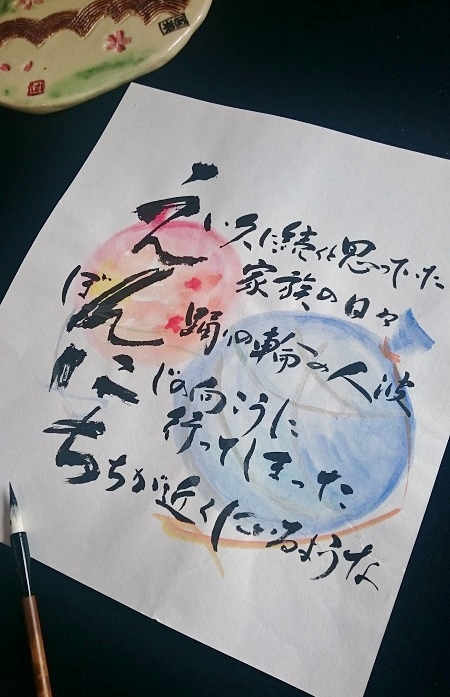 えい久に続くと思っていた
家族の日々
ぼん踊りの輪の人波
にじの向こうに
行ってしまった
ちちが近くにいるような